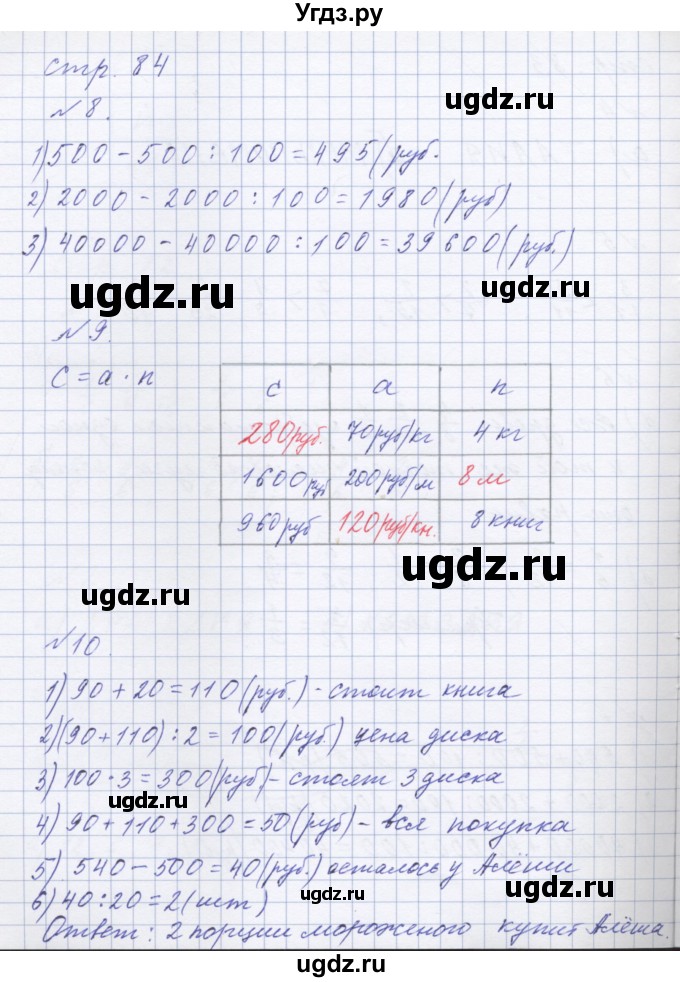 Угдз.ру
стр. 84
№ 8.
ugdz.ru
1) 500 - 500 : 100 = 495 (руб.
2) 2000 - 2000 : 100 = 1980 (руб)
3) 40000 - 40000 : 100 = 39600 (руб.)
ugdz.ru ugdz.ru
№ 9.
C = a · n
c a n
280 руб. 70 руб/кг 4 кг
1600 руб 200 руб/м 8 м
960 руб 120 руб/кн. 8 книг
ugdz.ru
ugdz.ru
№ 10.
1) 90 + 20 = 110 (руб.) - стоит книга
2) (90 + 110) : 2 = 100 (руб.) цена диска
3) 100 · 3 = 300 (руб) - стоят 3 диска
ugdz.ru
4) 90 + 110 + 300 = 50 (руб) - вся покупка
5) 540 - 500 = 40 (руб.) осталось у Алёши
6) 40 : 20 = 2 (шт)
ugdz.ru
Ответ: 2 порции мороженого купит Алёша.
ugdz.ru